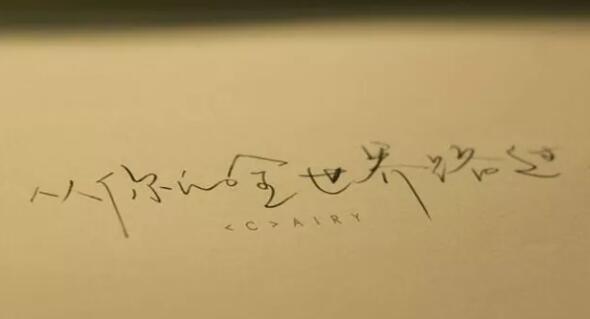 从你的全世界路过
<C>AIRY